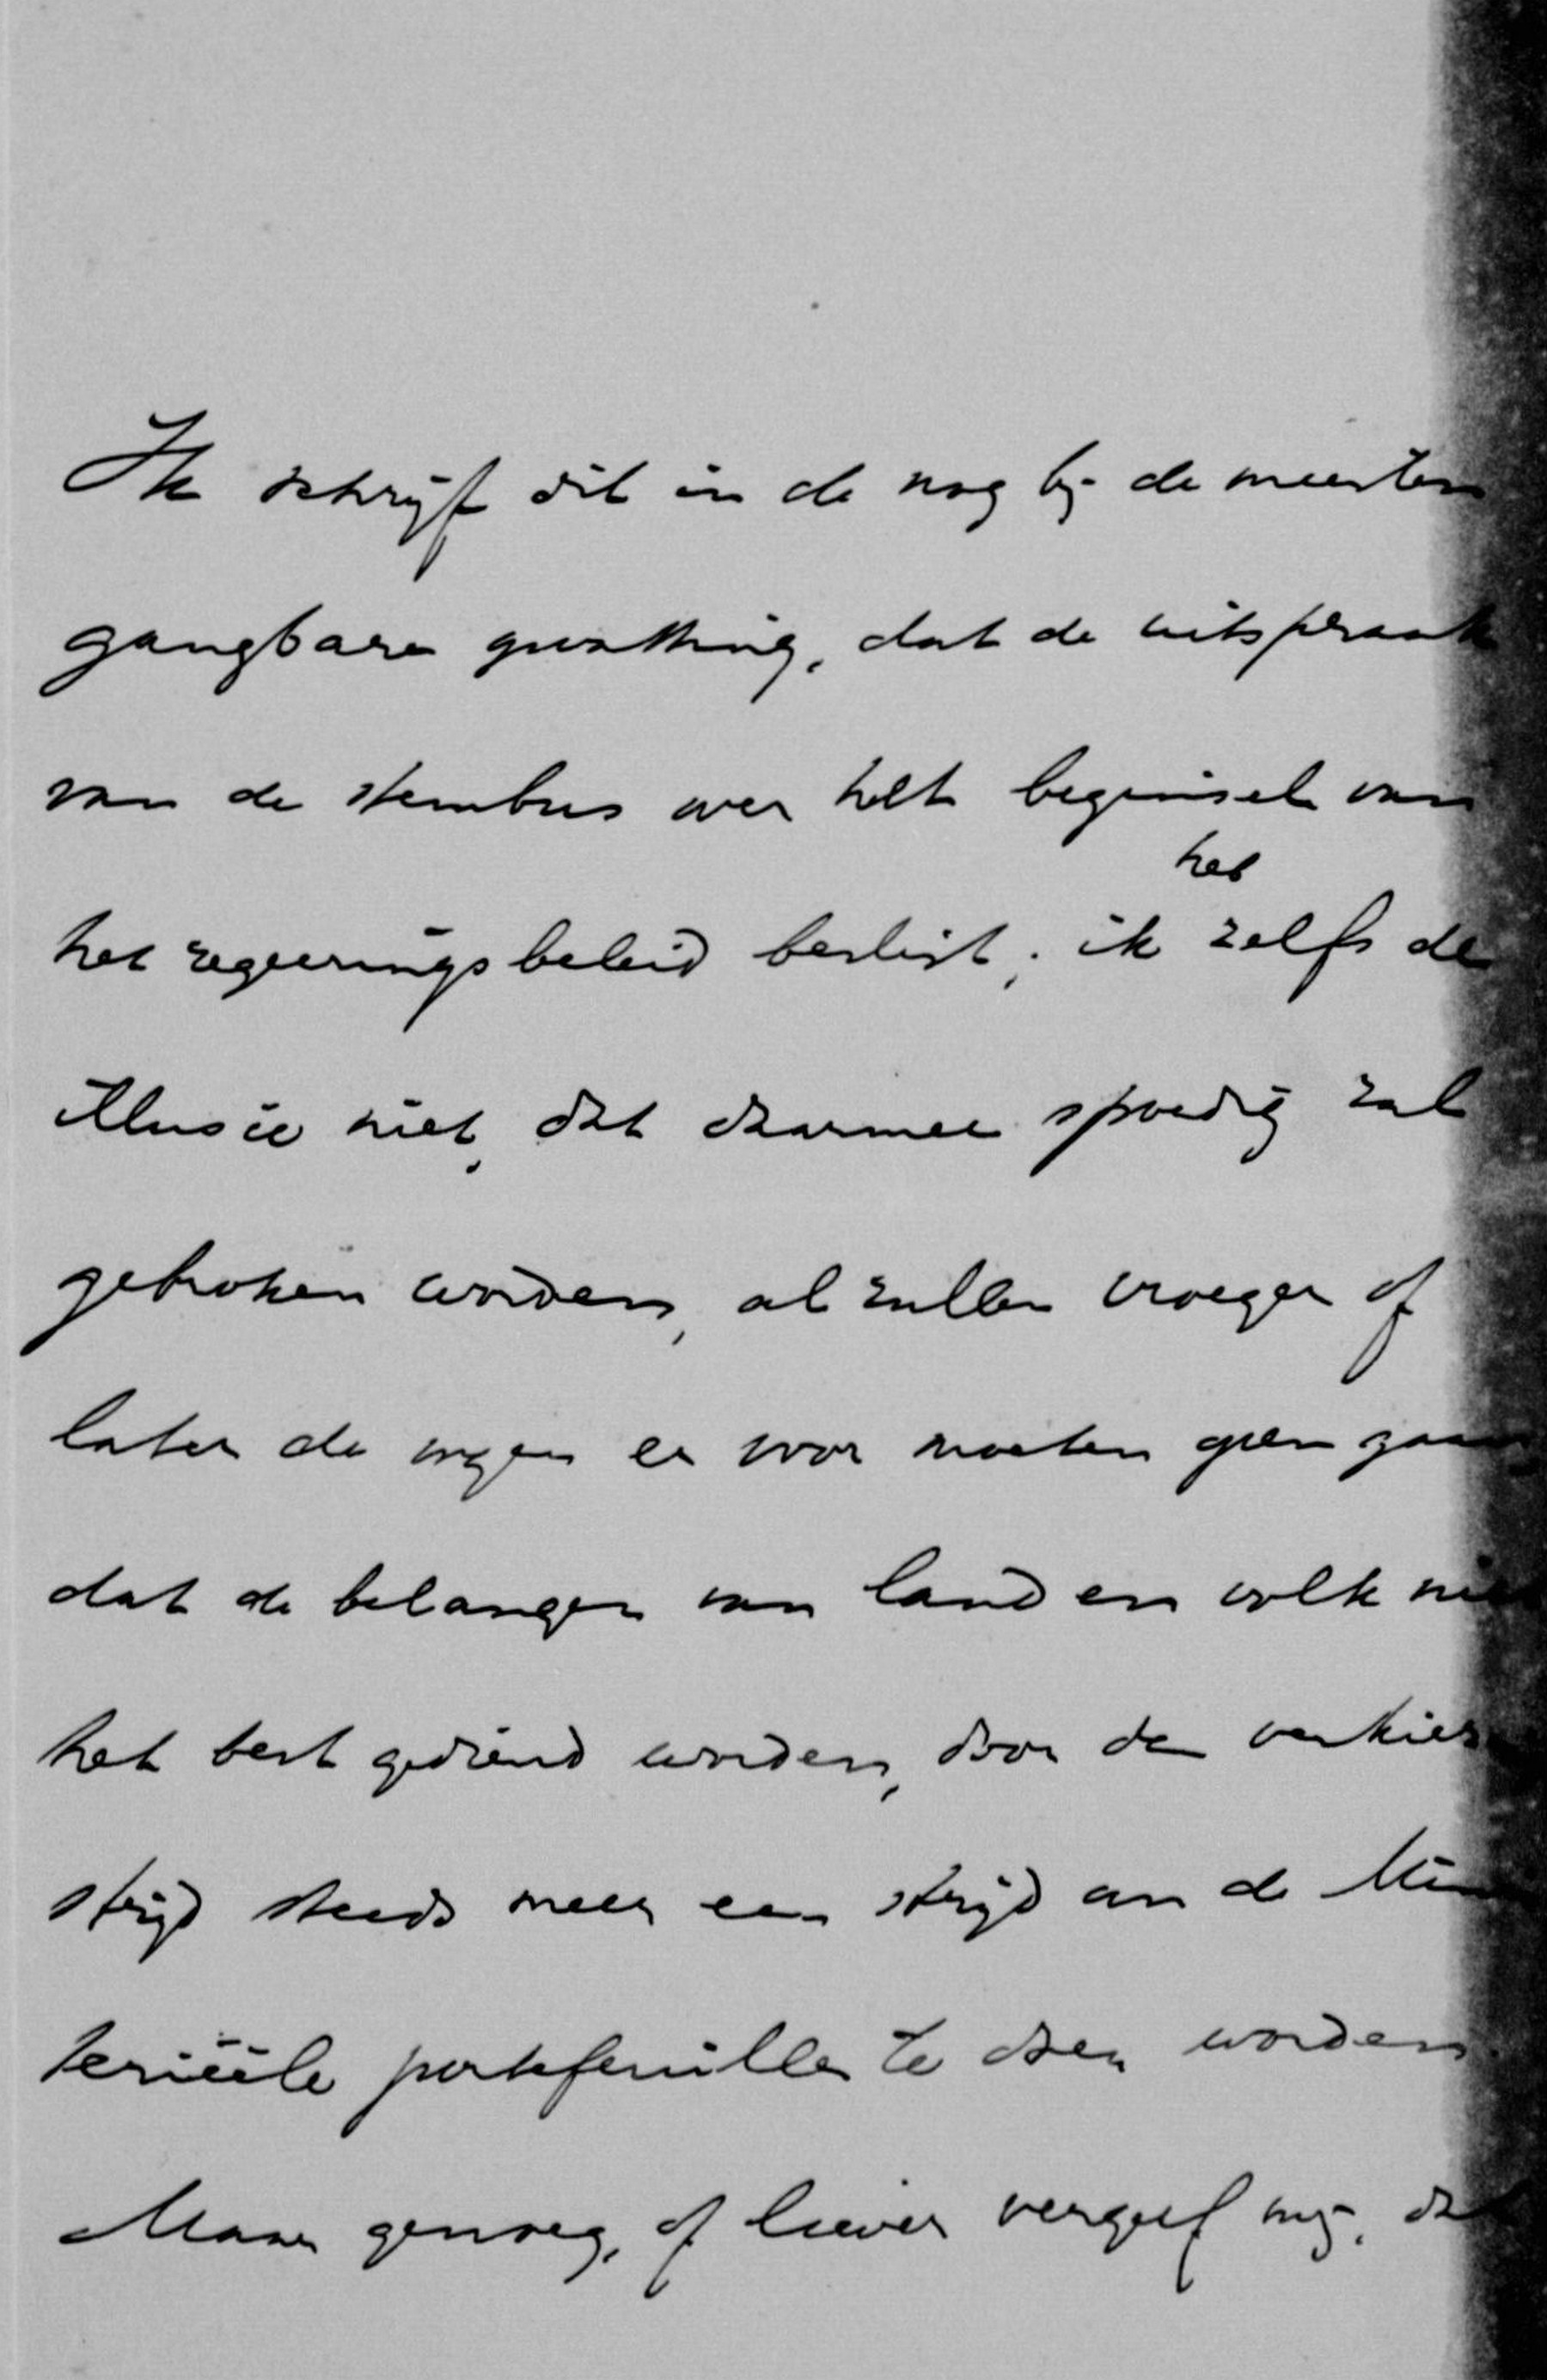 Ik schrijf dit in de nog bij de meesten
gangbare opvatting, dat de uitspraak
van de stembus over het beginsel van
het
het regeeringsbeleid beslist; ik zelfs de
illusie niet, dat daarmee spoedig zal
gebroken worden, al zullen vroeger of
later de oogen er voor moeten open gaan
dat de belangen van land en volk niet
het best gediend worden, door den verkies
strijd steeds meer een strijd om de Minis
terieële portefeuilles te doen worden.
Maar genoeg, of liever vergeef mij, dat